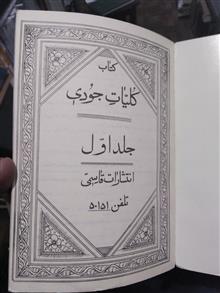 کتاب
کلیات جودی
جلد اول
انتشارات قاسمی
تلفن ۵۰۱۵۱